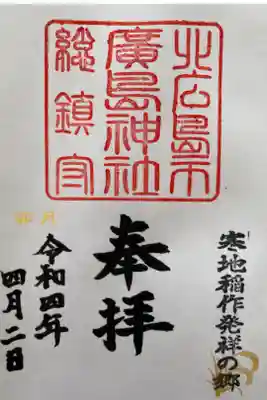 北広島市
廣島神社
総鎮守
寒地稲作発祥の郷
奉拝
令和四年
四月二日
卯月